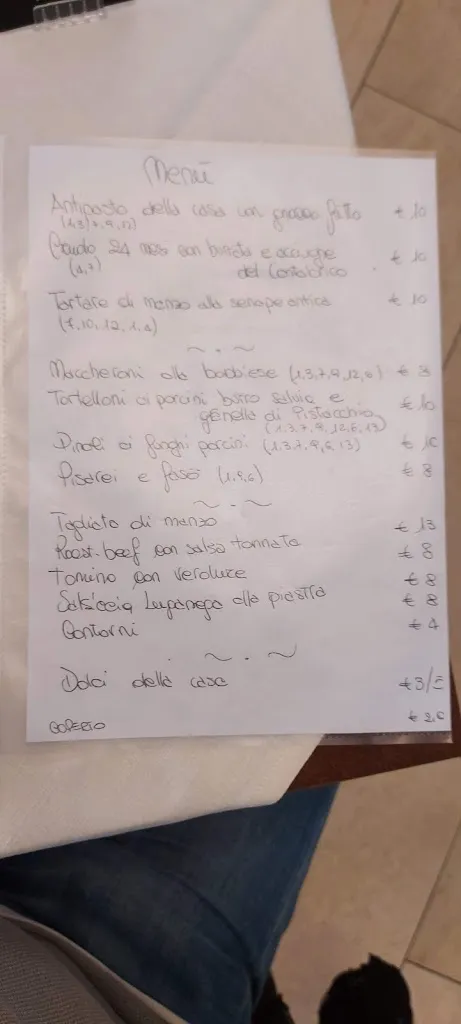 Menù
Antipasto della casa con gnocco fritto € 10
(1,3,7,9,12)
Crudo 24 mesi con burrata e acciughe € 10
(4,7) del Cantabrico
Tartare di manzo alla senape antica € 10
(7,10,12,1,4)
~ . ~
Maccheroni alla bobbiese (1,3,7,9,12,6) €
Tortelloni ai porcini burro salvia e € 10
granella di Pistacchio
(1,3,7,9,12,6,13)
ai funghi porcini (1,3,7,9,6,13) € 10
Pisarei e fasò (1,9,6) € 8
~ . ~
Tagliata di manzo € 13
Roast-beef con salsa tonnata € 8
Tomino con verdure € 8
Salsiccia Luganega alla piastra € 8
Contorni € 4
~ . ~
Dolci della casa € 3/5
COPERTO €